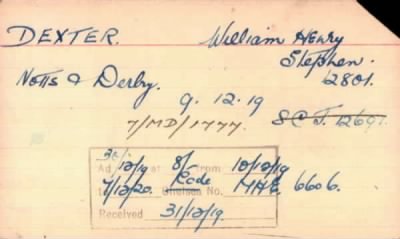 DEXTER. William Henry
Stephen.
2801.
Notts & Derby.
9.12.19
7/MD/1777. S C J. 1269
30/12/19 8/ from 10/12/19
7/12/20. Code MHE 6606.
Chelsea No.
Received 31/12/19.